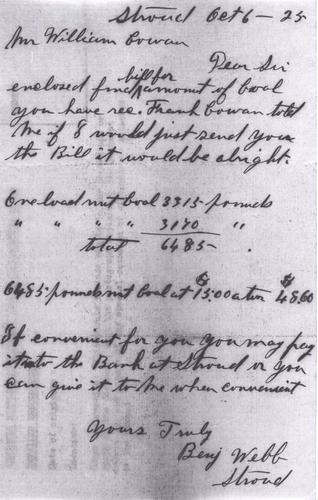 Stroud Oct 6 - 25
Mr William Cowan
Dear Sir
bill for
enclosed find amount of Coal
you have rec. Frank Cowan told
Me if I would just send you
the Bill it would be alright.
One load nut Coal 3315 pounds
" " " " 3170 "
total 6485 .
6485 pounds nut Coal at $15.00 a ton $48.60
If convenient for you you may pay
it into the Bank at Stroud or you
can give it to Me when convenient
Yours Truly
Benj Webb
Stroud